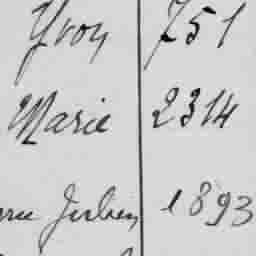 Yvon 751
Marie 2314
Julien 1893